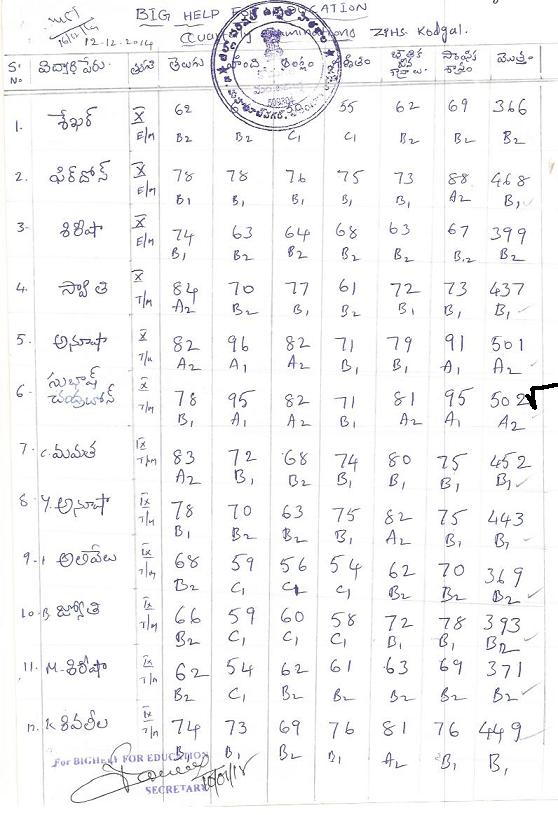 12-12-2014
BIG HELP FOR EDUCATION
Quarterly Examinations ZPHS. Kodgal.
S.No విద్యార్థి పేరు తరగతి తెలుగు హిందీ ఇంగ్లీషు గణితం భౌతిక సాంఘిక శాస్త్రం మొత్తం
1. శేఖర్ X 62 55 62 69 366
E/M B2 B2 C1 C1 B2 B2 B2
2. ఫిర్దోస్ X 78 78 76 75 73 88 468
E/M B1 B1 B1 B1 B1 A2 B1
3- శిరీషా X 74 63 64 68 63 67 399
E/M B1 B2 B2 B2 B2 B2 B2
4. స్వాతి X 84 70 77 61 72 73 437
T/M A2 B2 B1 B2 B1 B1 B1
5. అనూషా X 82 96 82 71 79 91 501
T/M A2 A1 A2 B1 B1 A1 A2
6. సుభాష్
చంద్రబోస్ X 78 95 82 71 81 95 502
T/M B1 A1 A2 B1 A2 A1 A2
7. C.మమత IX 83 72 68 74 80 75 452
T/M A2 B1 B2 B1 B1 B1 B1
8 Y.అనూషా IX 78 70 63 75 82 75 443
T/M B1 B2 B2 B1 A2 B1 B1
9. అలివేలు IX 68 59 56 54 62 70 369
T/M B2 C1 C1 C1 B2 B2 B2
10. B జ్యోతి IX 66 59 60 58 72 78 393
T/M B2 C1 C1 C1 B1 B1 B2
11. M.శిరీషా IX 62 54 62 61 63 69 371
T/M B2 C1 B2 B2 B2 B2 B2
12. K శివలీల IX 74 73 69 76 81 76 449
T/M B1 B1 B2 B1 A2 B1 B1
For BIGHELP FOR EDUCATION
SECRETARY